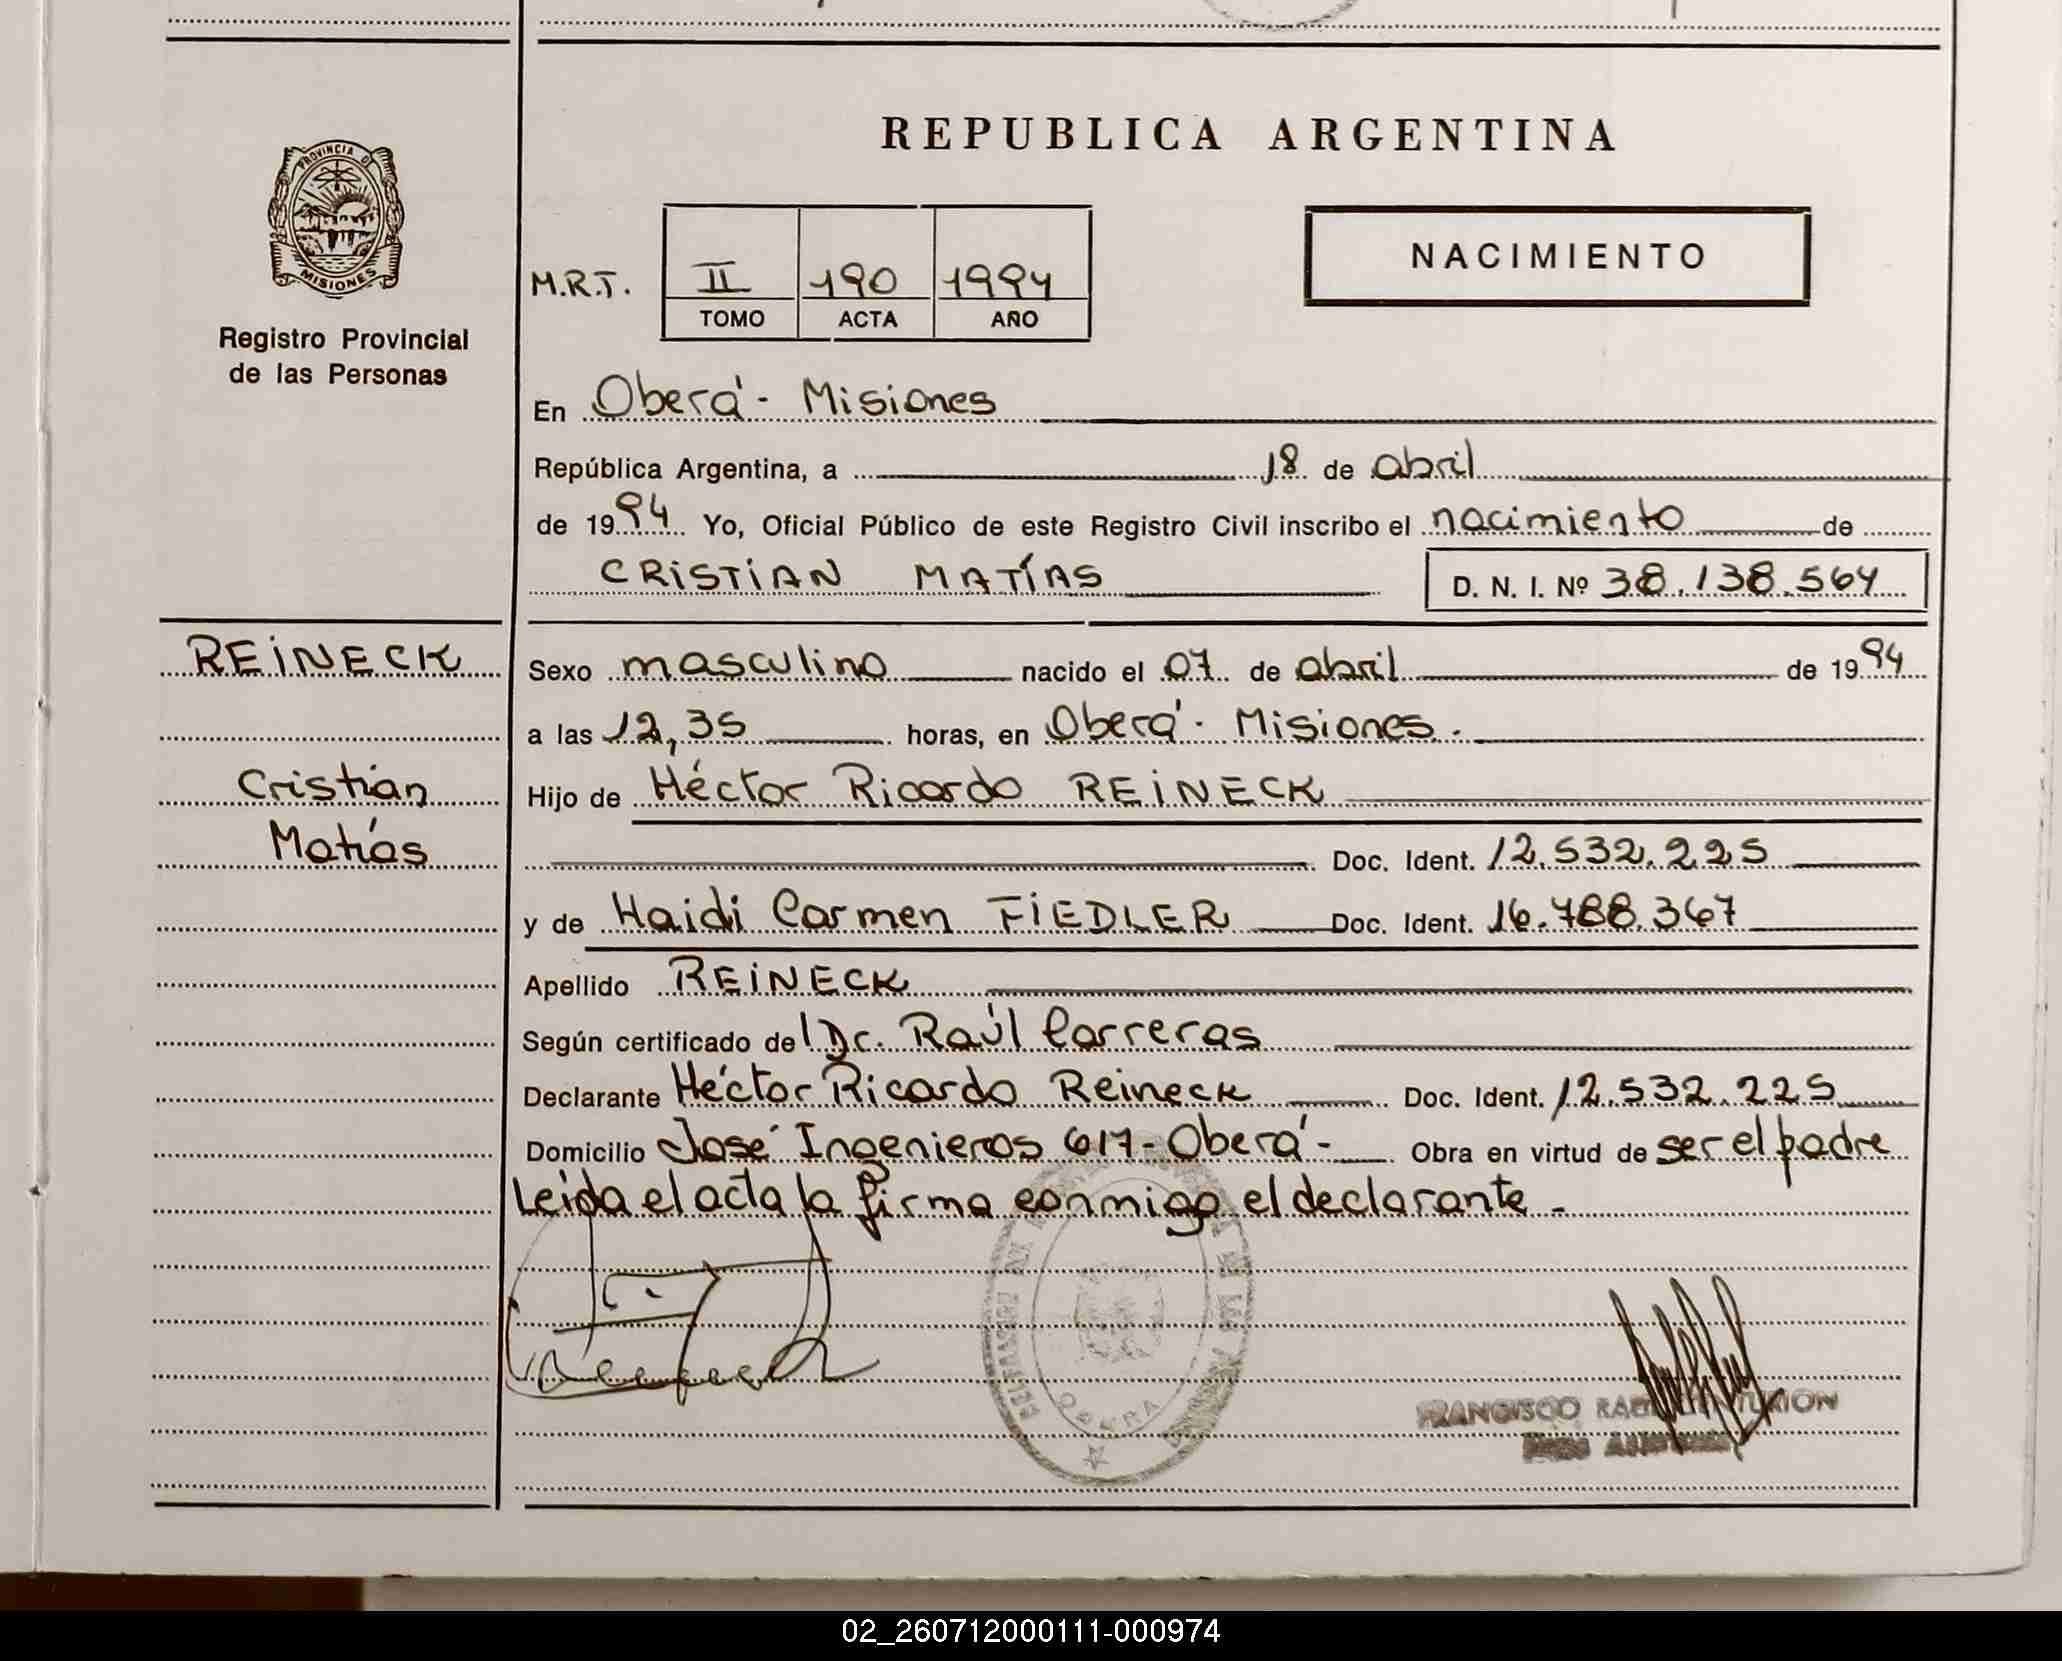 PROVINCIA DE
MISIONES
Registro Provincial
de las Personas
REPUBLICA ARGENTINA
NACIMIENTO
M.R.T. II 190 1994
TOMO ACTA AÑO
En Oberá - Misiones
República Argentina, a 18 de abril
de 1994 Yo, Oficial Público de este Registro Civil inscribo el nacimiento de
CRISTIAN MATÍAS D. N. I. Nº 38.138.564
REINECK
Cristian
Matías
Sexo masculino nacido el 07 de abril de 1994
a las 12,35 horas, en Oberá - Misiones.
Hijo de Héctor Ricardo REINECK
Doc. Ident. 12.532.225
y de Haidi Carmen FIEDLER Doc. Ident. 16.788.367
Apellido REINECK
Según certificado de l Dr. Raúl Carreras
Declarante Héctor Ricardo Reineck Doc. Ident. 12.532.225
Domicilio José Ingenieros 617 - Oberá - Obra en virtud de ser el padre
Leida el acta la firma conmigo el declarante -
OBERA
FRANCISCO
02_260712000111-000974